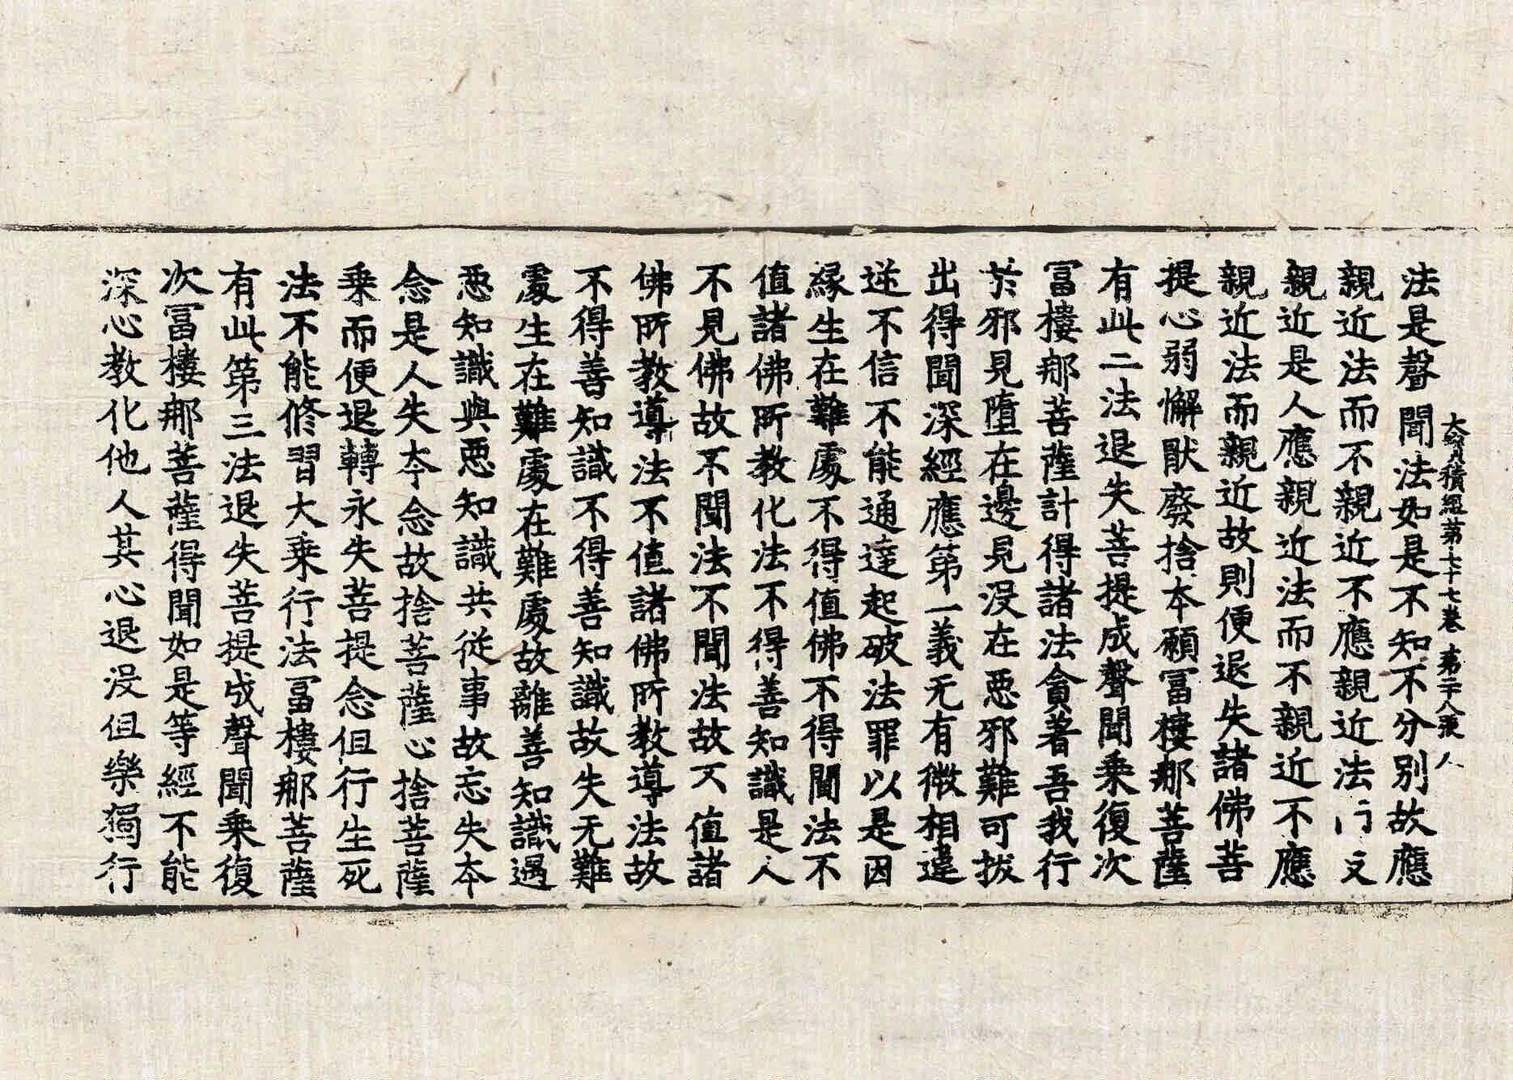 大寶積經第七十七卷 第二 張 人
法是聲聞法如是不知不分別故應
親近法而不親近不應親近法
親近是人應親近法而不親近不應
親近法而親近故則便退失諸佛菩
提心弱懈猒廢捨本願冨樓那菩薩
有此二法退失菩提成聲聞乗復次
冨樓那菩薩計得諸法貪著吾我行
於邪見墮在邊見没在惡邪難可拔
出得聞深經應第一義无有微相違
逆不信不能通達起破法罪以是因
緣生在難處不得值佛不得聞法不
值諸佛所教化法不得善知識是人
不見佛故不聞法不聞法故不值諸
佛所教導法不值諸佛所教導法故
不得善知識不得善知識故失无難
處生在難處在難處故離善知識遇
惡知識與惡知識共從事故忘失本
念是人失本念故捨菩薩心捨菩薩
乗而便退轉永失菩提念但行生死
法不能修習大乗行法冨樓那菩薩
有此第三法退失菩提成聲聞乗復
次冨樓那菩薩得聞如是等經不能
深心教化他人其心退没但樂獨行